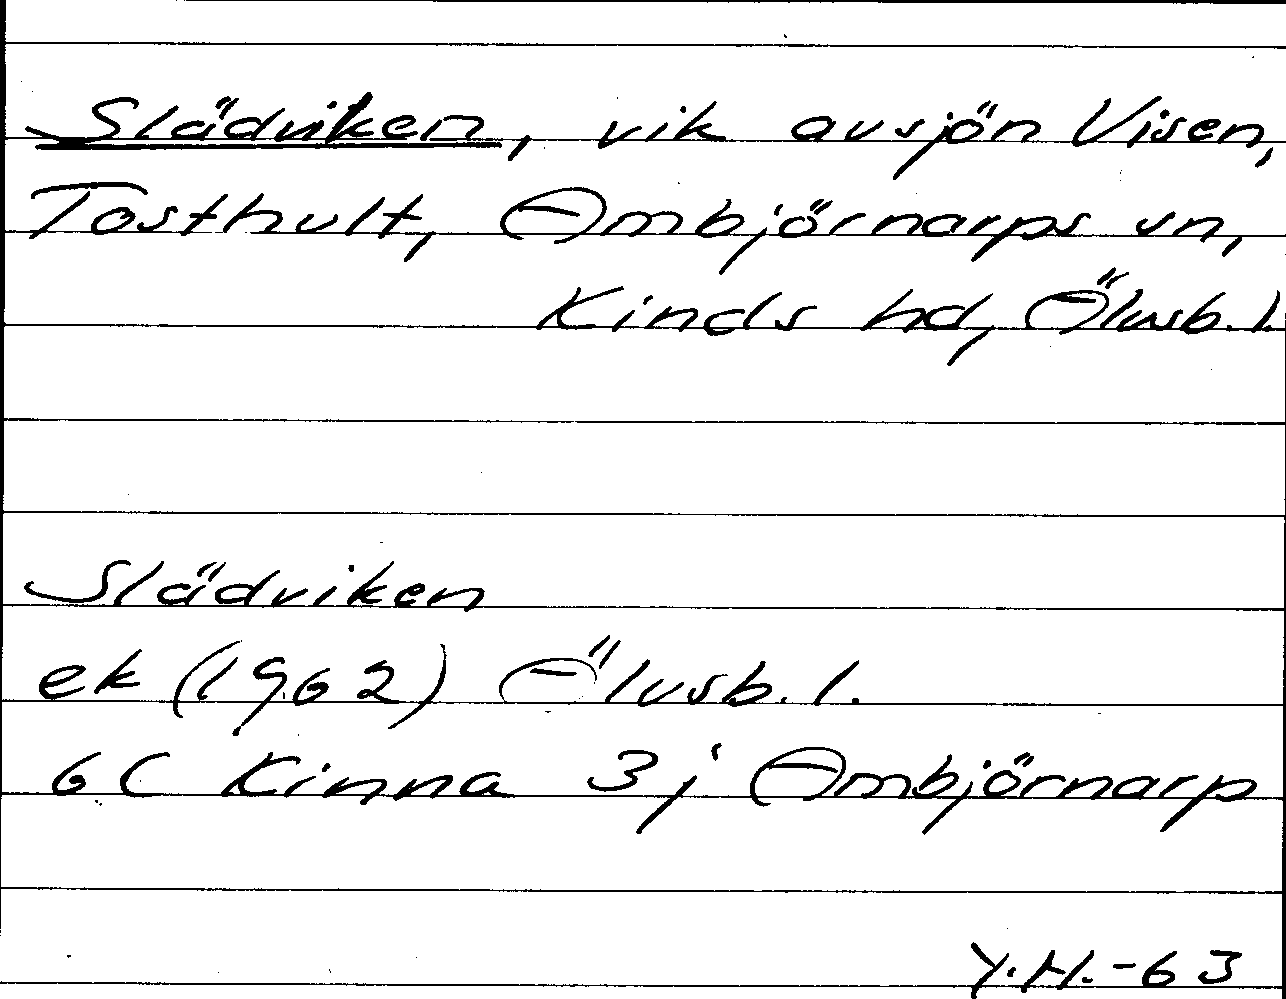 Slädviken, vik av sjön Visen,
Tosthult, Ambjörnarps sn,
Kinds hd, Älvsb. l.
Slädviken
ek (1962) Älvsb. l.
6C Kinna 3j Ambjörnarp
Y.H.-63